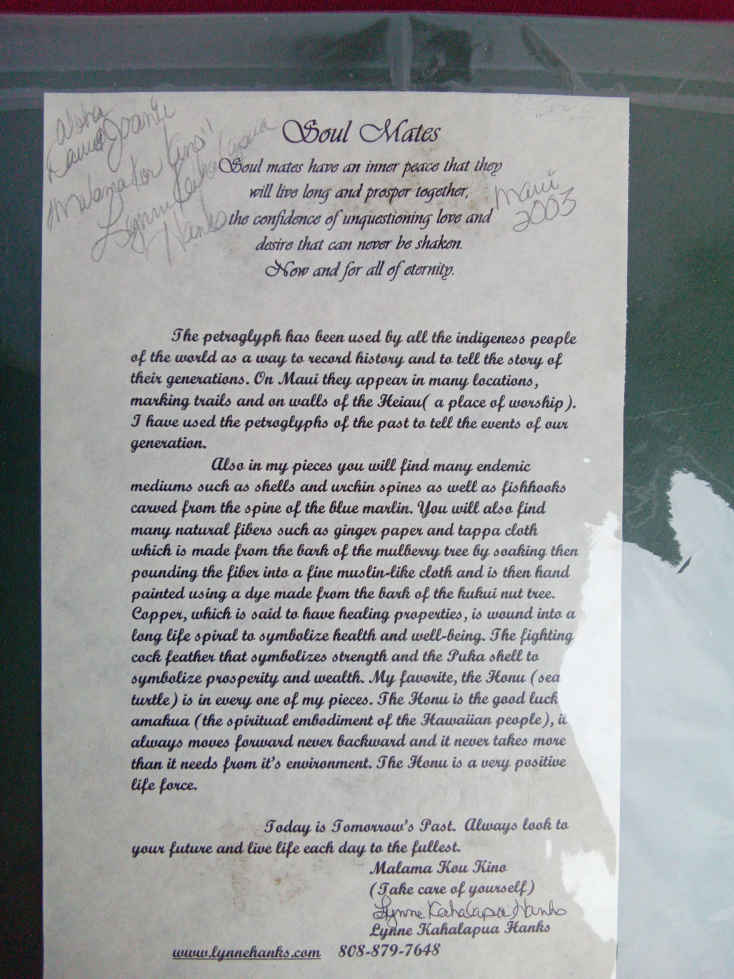 Aloha
"Malama Kou Kino"
Lynne Kahalapua
Hanks
Maui
2003
Soul Mates
Soul mates have an inner peace that they
will live long and prosper together,
the confidence of unquestioning love and
desire that can never be shaken.
Now and for all of eternity.
The petroglyph has been used by all the indigeness people
of the world as a way to record history and to tell the story of
their generations. On Maui they appear in many locations,
marking trails and on walls of the Heiau( a place of worship).
I have used the petroglyphs of the past to tell the events of our
generation.
Also in my pieces you will find many endemic
mediums such as shells and urchin spines as well as fishhooks
carved from the spine of the blue marlin. You will also find
many natural fibers such as ginger paper and tappa cloth
which is made from the bark of the mulberry tree by soaking then
pounding the fiber into a fine muslin-like cloth and is then hand
painted using a dye made from the bark of the kukui nut tree.
Copper, which is said to have healing properties, is wound into a
long life spiral to symbolize health and well-being. The fighting
cock feather that symbolizes strength and the Puka shell to
symbolize prosperity and wealth. My favorite, the Honu (sea
turtle) is in every one of my pieces. The Honu is the good luck
amakua (the spiritual embodiment of the Hawaiian people), it
always moves forward never backward and it never takes more
than it needs from it's environment. The Honu is a very positive
life force.
Today is Tomorrow's Past. Always look to
your future and live life each day to the fullest.
Malama Kou Kino
(Take care of yourself)
Lynne Kahalapua Hanks
Lynne Kahalapua Hanks
www.lynnehanks.com 808-879-7648